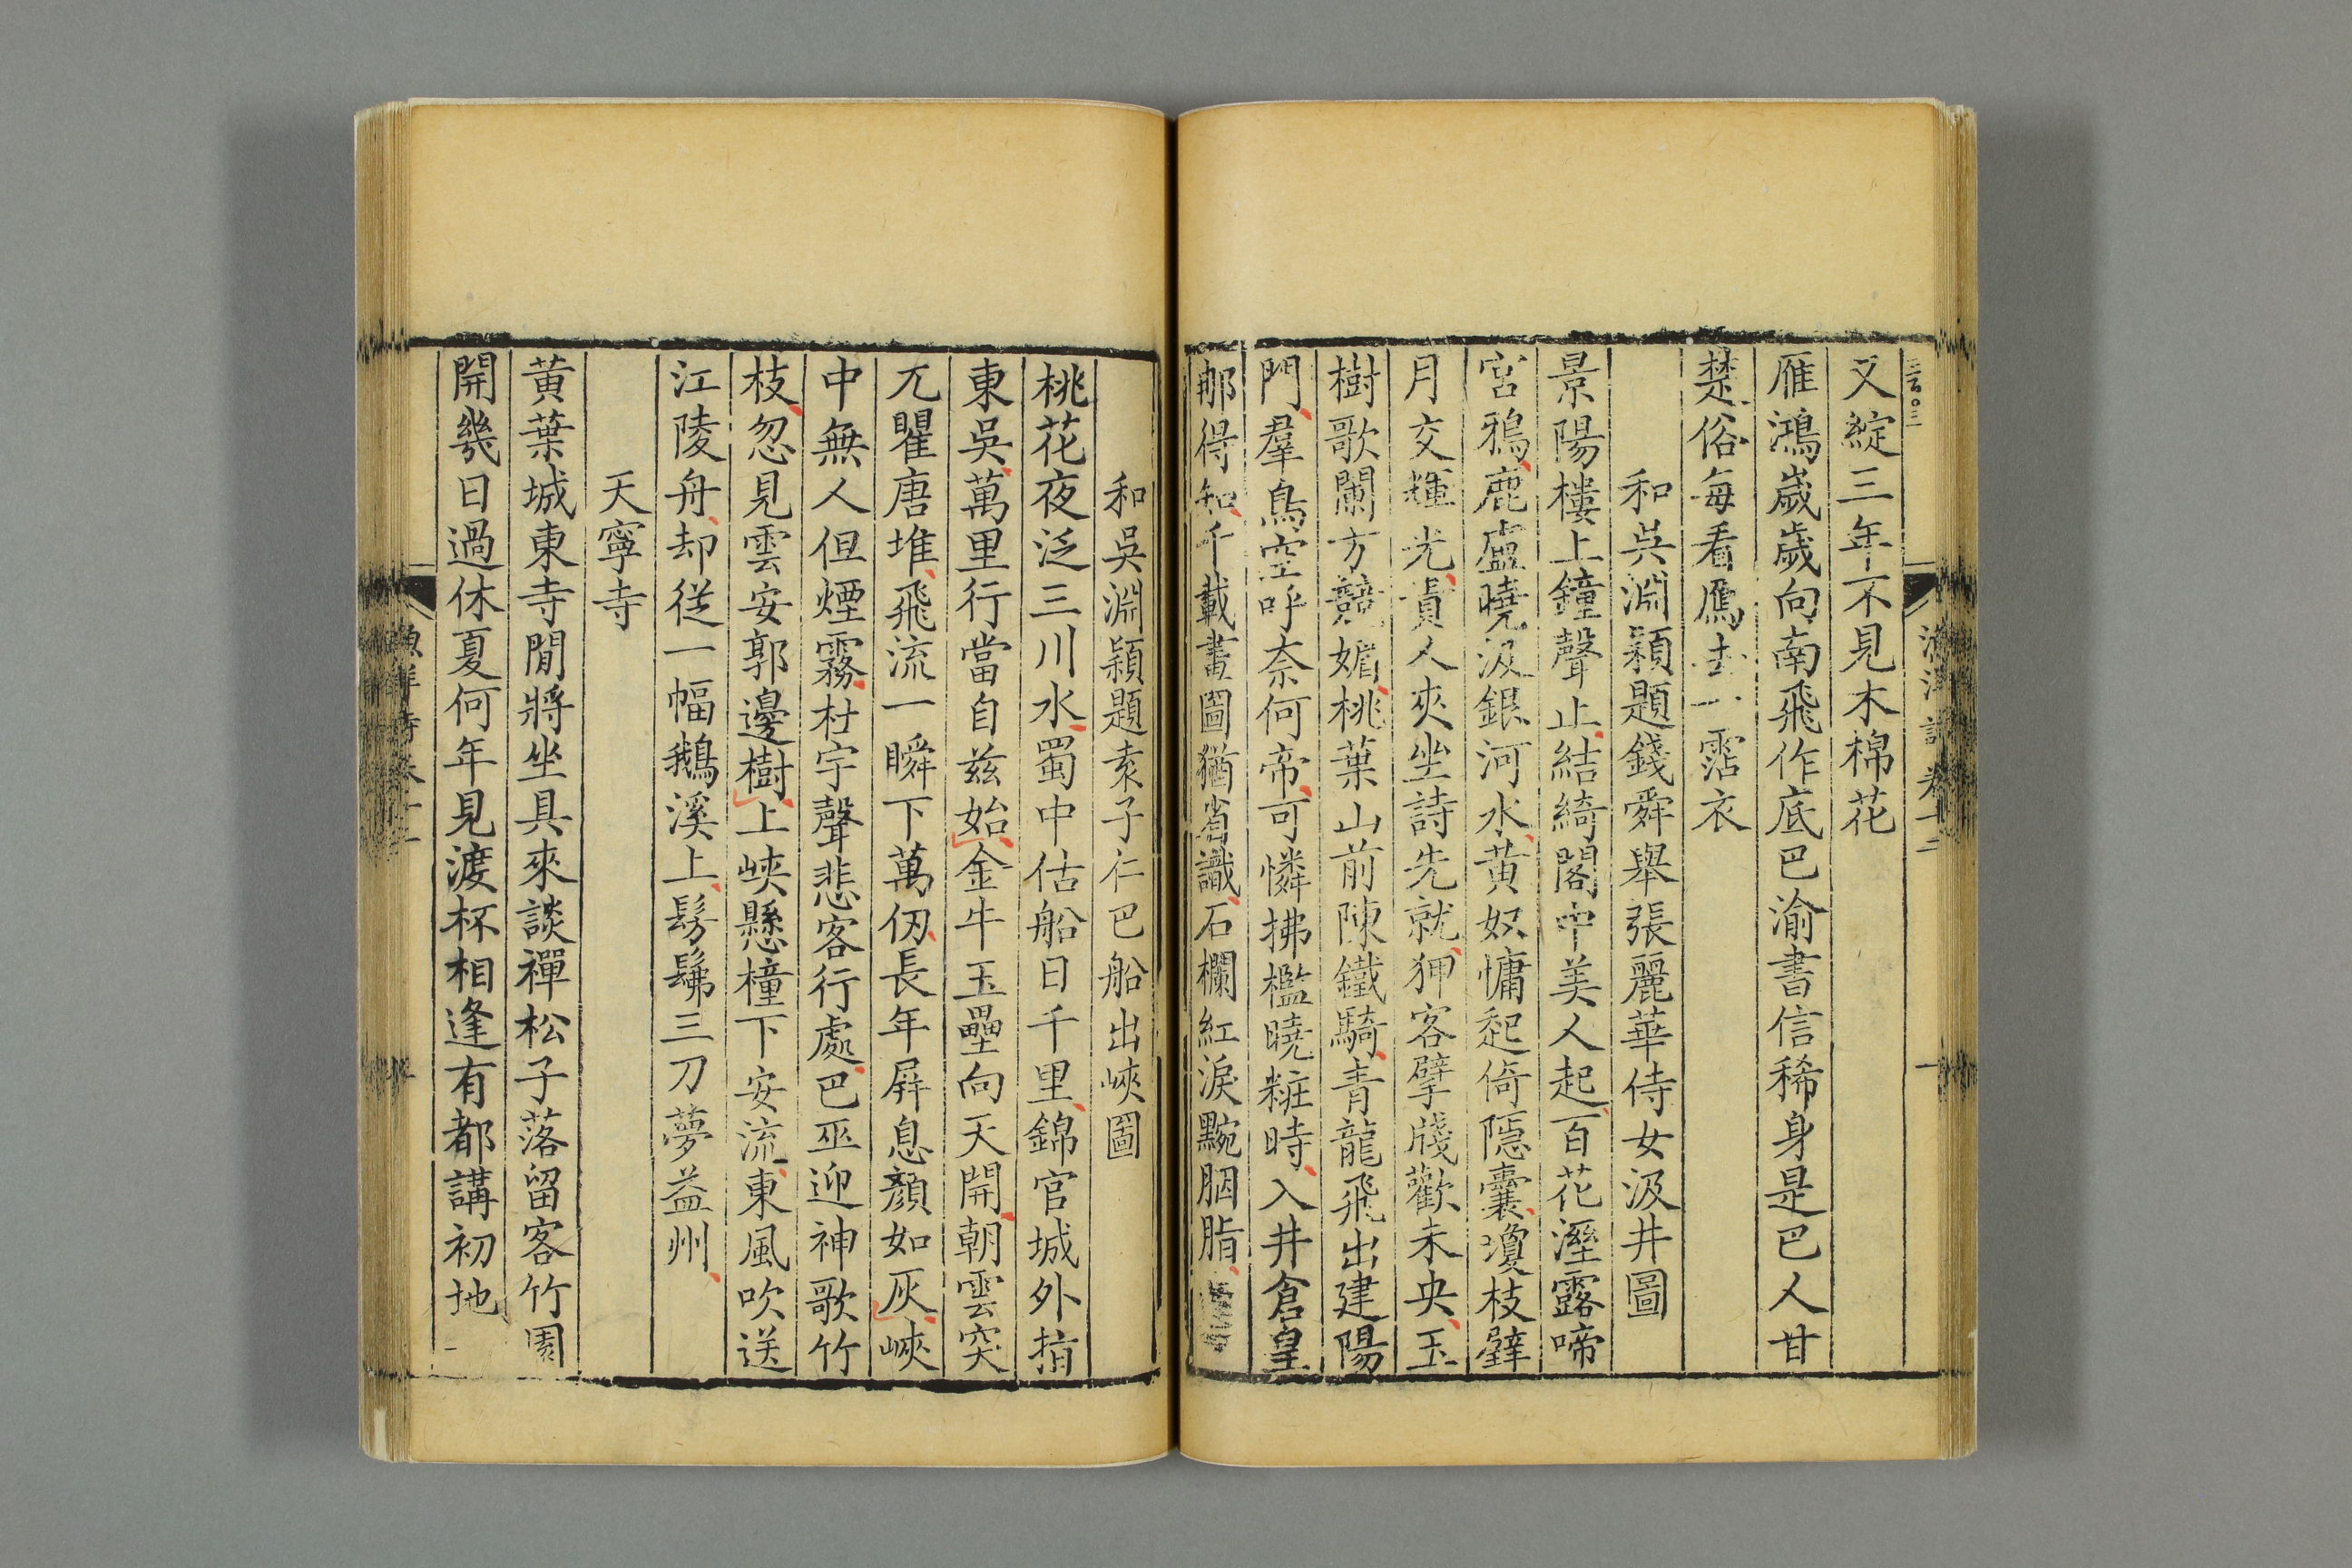 又綻三年不見木棉花
雁鴻歲歲向南飛作底巴渝書信稀身是巴人甘
楚俗每看鴈去一霑衣
和吳淵穎題錢舜舉張麗華侍女汲井圖
景陽樓上鐘聲止結綺閣中美人起百花溼露啼
宮鴉鹿盧曉汲銀河水黃奴慵起倚隱囊瓊枝璧
月交輝光貴人夾坐詩先就狎客擘牋歡未央玉
樹歌闌方競媚桃葉山前陳鐵騎青龍飛出建陽
門羣鳥空呼奈何帝可憐拂檻曉粧時入井倉皇
那得知千載畫圖猶省識石欄紅淚黦胭脂
和吳淵穎題袁子仁巴船出峽圖
桃花夜泛三川水蜀中估船日千里錦官城外指
東吳萬里行當自茲始金牛玉壘向天開朝雲突
兀瞿唐堆飛流一瞬下萬仞長年屏息顏如灰峽
中無人但煙霧杜宇聲悲客行處巴巫迎神歌竹
枝忽見雲安郭邊樹上峽懸橦下安流東風吹送
江陵舟却從一幅鵝溪上髣髴三刀夢益州
天寧寺
黃葉城東寺閒將坐具來談禪松子落留客竹園
開幾日過休夏何年見渡杯相逢有都講初地
漁洋詩卷十二